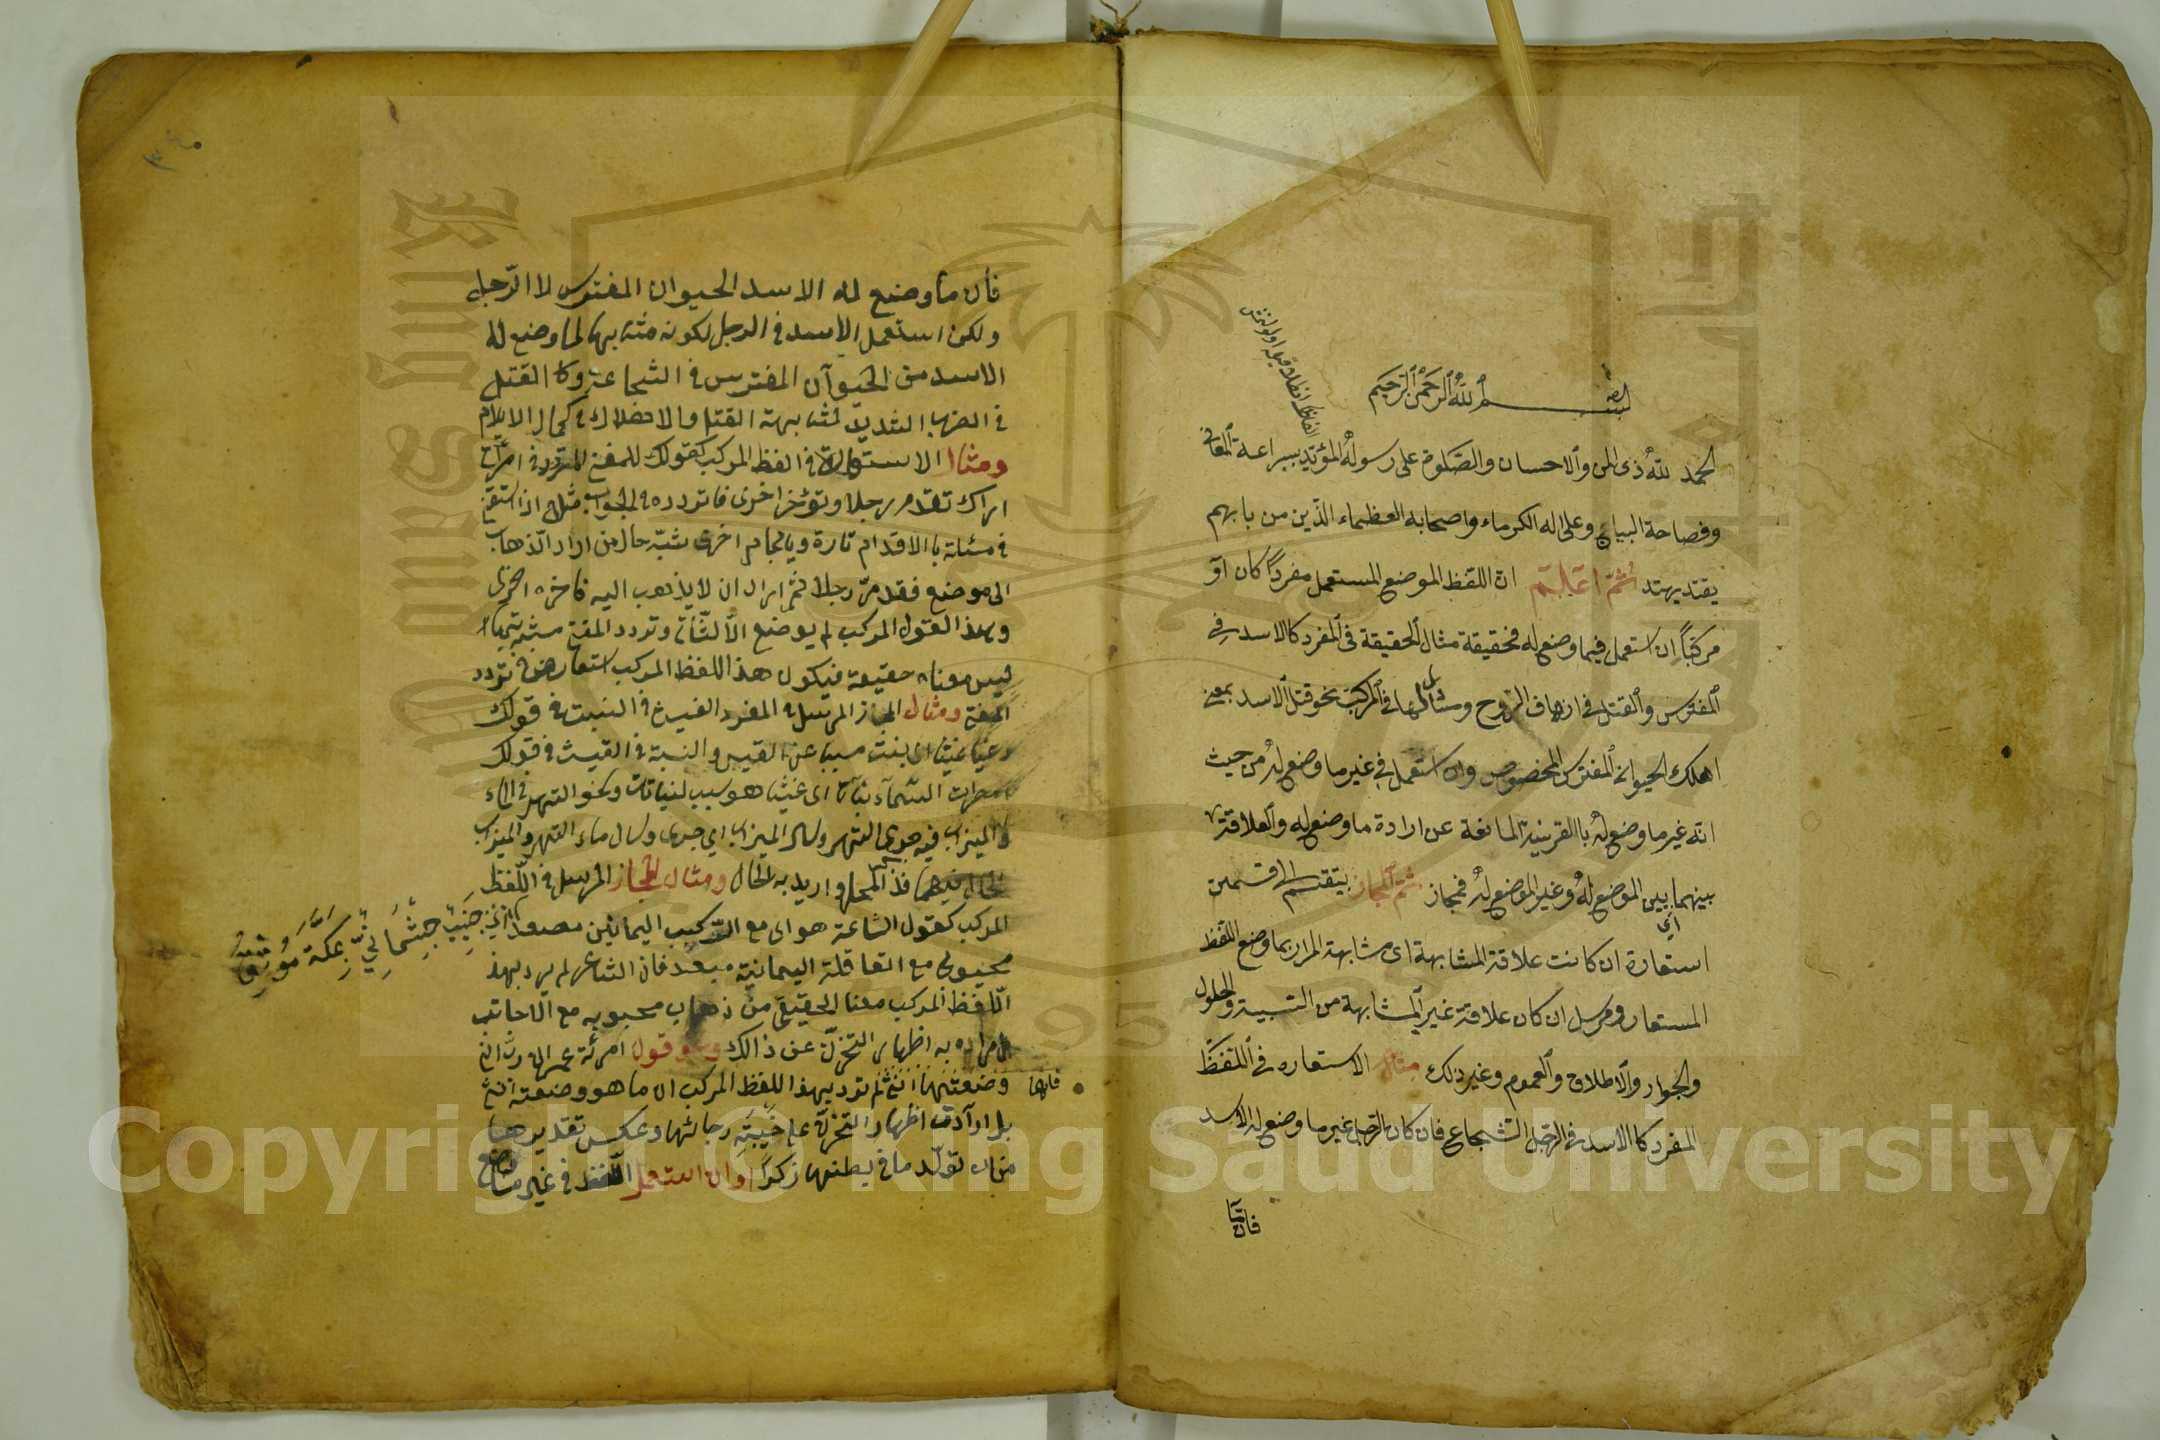 بسم الله الرحمن الرحيم
الحمد لله ذى المن والاحسان والصلوة على رسوله المؤيد ببراعة المعانى
وفصاحة البيان وعلى اله الكرماء واصحابه العظماء الذين من بابهم
يقتد يهتد ثم اعلم ان اللفظ الموضع المستعمل مفردا كان او
مركبا ان استعمل فيما وضع له فحقيقة مثال الحقيقة فى المفرد كالاسد فى
المفترس والقتل فى ازهاق الروح ومثالها فى المركب نحو قتل الاسد بمعنى
اهلك الحيوان المفترس المخصوص وان استعمل فى غير ما وضع له من حيث
انه غير ما وضع له باالقرينة المانعة عن ارادة ما وضع له والعلاقة
بينهما اي بين الموضع له وغير الموضع له فمجاز ثم المجاز ينقسم الى قسمين
استعارة ان كانت علاقة المشابهة اى مشابهة المراد بما وضع اللفظ
المستعار ومرسل ان كان علاقة غير المشابهة من السببية والحلول
والجوار والاطلاق والعموم وغير ذلك مثال الاستعاره فى اللفظ
المفرد كا الاسد فى الرجل الشجاع فان كان الرجل غير ما وضع له الاسد
فان ما
فأن ما وضع له الاسد الحيوان المفترس لا الرجل
ولكن استعمل الاسد فى الرجل لكونه مشابها لما وضع له
الاسد من الحيوان المفترس فى الشجاعة وكا القتل
فى الضرب الشديد لمشابهة القتل والاهلاك فى كمال الايلام
ومثال الاستعارة فى الفظ المركب كقولك للمفتى المتردد فى امر انى
اراك تقدم رجلا وتؤخر اخرى فا تردده فى الجواب مثل اذا استفتى
فى مسئلة با الاقدام تارة وبالاحجام اخرى شبه حال من اراد الذهاب
الى موضع فقدم رجلا ثم اراد ان لا يذهب اليه فاخره اخرى
وهذا القول المركب لم يوضع الا لثانى وتردد المفتى مشبه
ليس معناه حقيقة فيكون هذا اللفظ المركب استعارة فى تردد
المفتى ومثال المجاز المرسل فى المفرد الغيث فى النبت فى قولك
رعينا غيثا اى نبت مسببا عن الغيث والنبت فى الغيث فى قولك
امطرت السماء نباتا اى غيثا هو سبب لنبات ونحو النهر فى الماء
والميزاب فيه جرى النهر وسال الميزاب اى جرى وسال ماء النهر والميزاب
الحال فيهما فذكر المحل واريد به الحال ومثال المجاز المرسل فى اللفظ
المركب كقول الشاعر هواى مع الركب اليمانين مصعد
جنيب وجثمانى بمكة موثق
محبوبى مع القافلة اليمانية مبعد فان الشاعر لم يرد بهذا
اللفظ المركب معنا الحقيقى من ذهاب محبوبه مع الاجانب
بل مراده به اظهار التحزن عن ذالك ونحو قول امرئة عمران رب انى
وضعتها انثى لم ترد بهذا اللفظ المركب ان ما هو وضعته انثى
فانها
بل ارادت اظهار التحزن على خيبة رجائها وعكس تقديرها
من ان تولد ما فى بطنها ذكرا وان استعمل اللفظ فى غير ما وضع